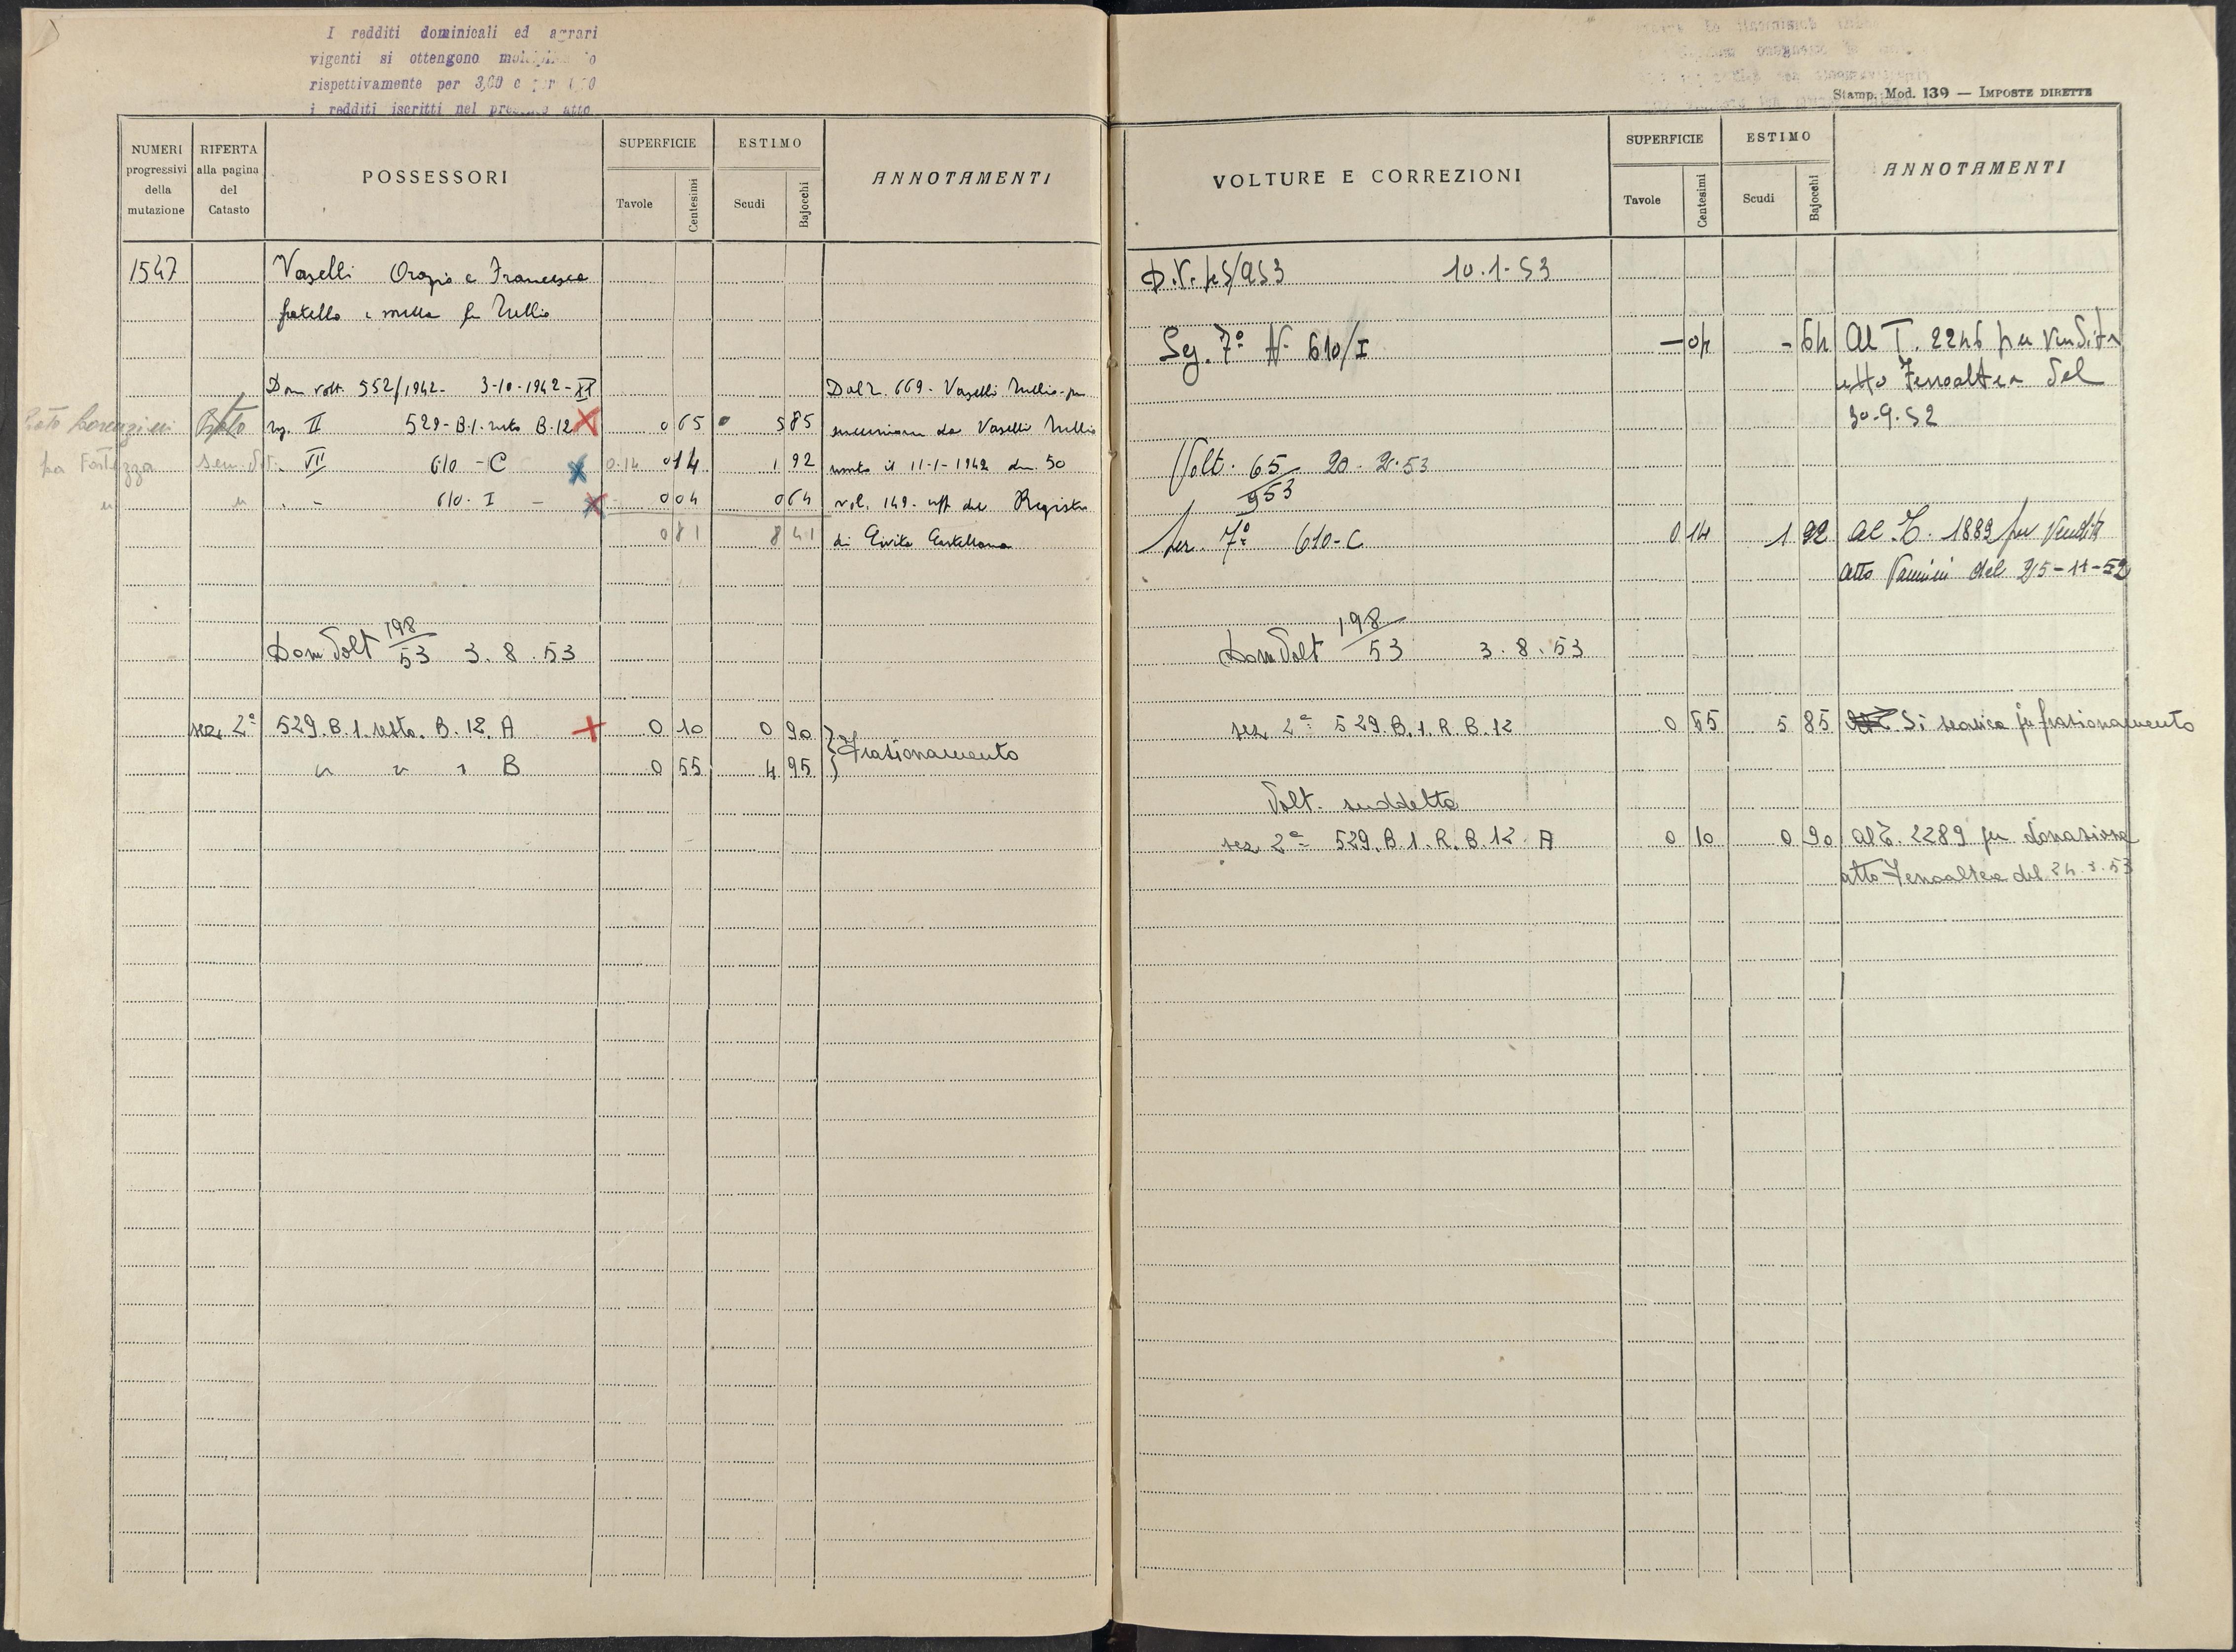 I redditi dominicali ed agrari
vigenti si ottengono
rispettivamente per 3,00 e per
i redditi iscritti nel presente atto
Stamp. Mod. 139 — IMPOSTE DIRETTE
NUMERI progressivi della mutazione
RIFERTA alla pagina del Catasto
POSSESSORI
SUPERFICIE
Tavole
Centesimi
ESTIMO
Scudi
Bajocchi
ANNOTAMENTI
1547 Vaselli Orazio e Francesca
fratello e sorella fu Tullio
Dom volt. 552/1942 - 3-10-1942-XX Dal 2. 669 - Vaselli Tullio per
sez. II 529-B.1. resto B.12 0 65 5 85 successione da Vaselli Tullio
VII 610 - C 0.14 0 14 1 92 morto il 11-1-1942 den. 50
" - 610. I - 0 04 0 64 vol. 149 - uff. del Registro
0 81 8 41 di Civita Castellana
Dom Volt 198/53 3. 8. 53
sez. 2ª 529. B. 1. resto. B. 12. A 0 10 0 90 } Frazionamento
" " " B 0 55 4 95
VOLTURE E CORREZIONI
SUPERFICIE
Tavole
Centesimi
ESTIMO
Scudi
Bajocchi
ANNOTAMENTI
10.1-53
Sez. 7ª N- 610/I — 04 - 64 Al T. 2246 per Vendita
atto Fenoaltea del
30-9-52
Volt. 65/953 20-2-53
Sez. 7ª 610-C 0 14 1 92 al T. 1889 per Vendita
atto del 25-11-52
Dom Volt 198/53 3. 8. 53
sez 2ª 529. B. 1. R. B. 12 0 65 5 85 Si scarica per frazionamento
Volt. suddetta
sez 2ª 529. B. 1. R. B. 12. A 0 10 0 90 al T. 2289 per donazione
atto Fenoaltea del 24.3.53